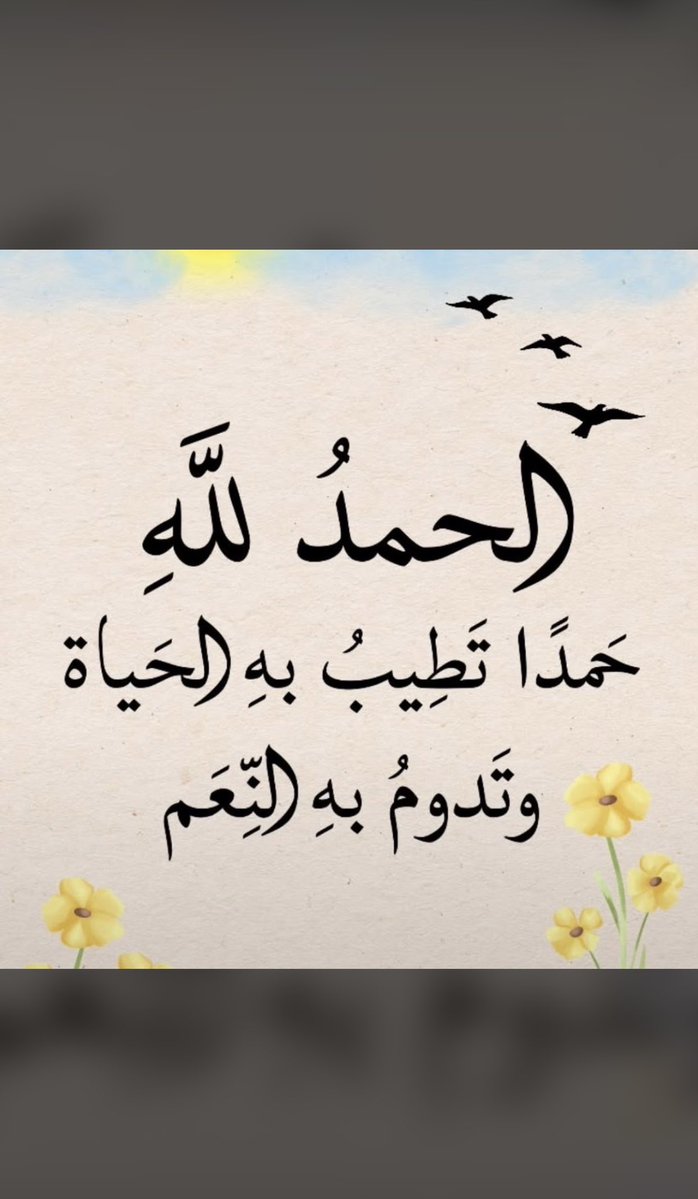 الحمدُ للَّهِ
حَمدًا تَطِيبُ بهِ الحَياة
وتَدومُ بهِ النِّعَم